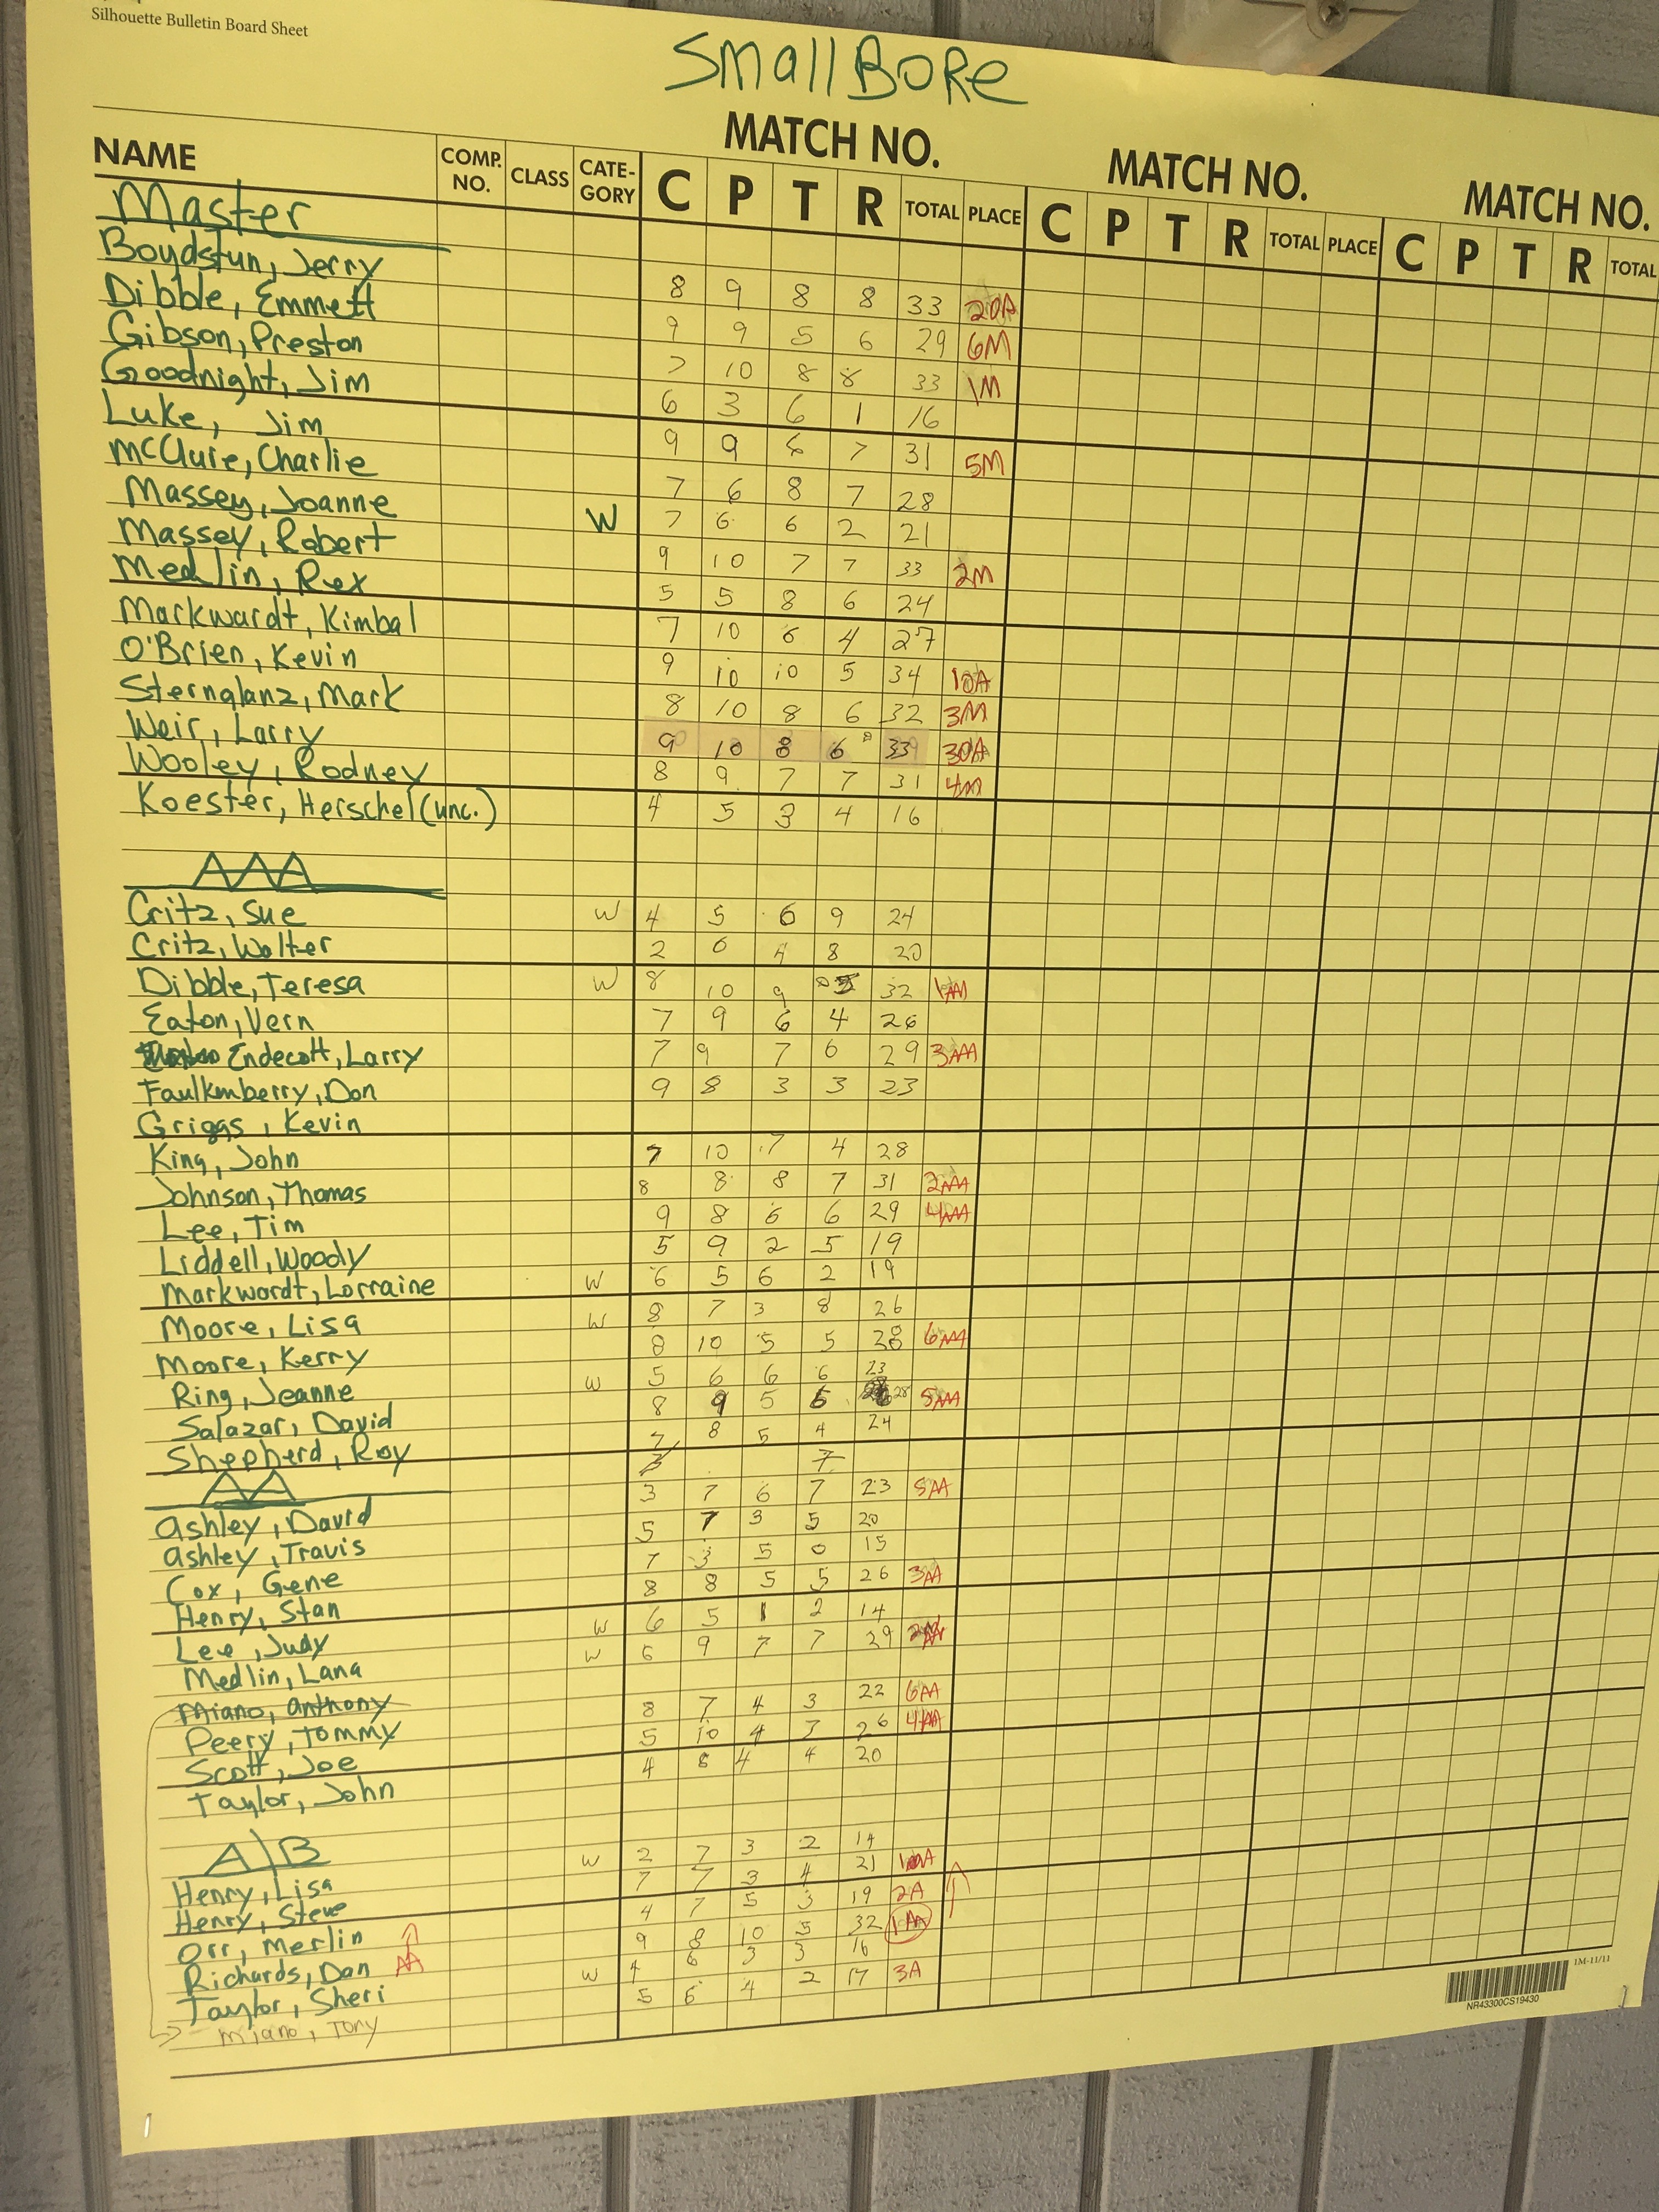 Silhouette Bulletin Board Sheet
SmallBoRe
MATCH NO. MATCH NO. MATCH NO.
NAME COMP. NO. CLASS CATE-GORY C P T R TOTAL PLACE C P T R TOTAL PLACE C P T R TOTAL
Master
Boydstun, Jerry 8 9 8 8 33 2OA
Dibble, Emmett 9 9 5 6 29 6M
Gibson, Preston 7 10 8 8 33 1M
Goodnight, Jim 6 3 6 1 16
Luke, Jim 9 9 6 7 31 5M
McClure, Charlie 7 6 8 7 28
Massey, Joanne W 7 6 6 2 21
Massey, Robert 9 10 7 7 33 2M
Medlin, Rex 5 5 8 6 24
Markwardt, Kimbal 7 10 6 4 27
O'Brien, Kevin 9 10 10 5 34 1OA
Sternglanz, Mark 8 10 8 6 32 3M
Weir, Larry 9 10 8 6 33 3OA
Wooley, Rodney 8 9 7 7 31 4M
Koester, Herschel (unc.) 4 5 3 4 16
AAA
Critz, Sue W 4 5 6 9 24
Critz, Walter 2 6 4 8 20
Dibble, Teresa W 8 10 9 5 32 1AAA
Eaton, Vern 7 9 6 4 26
Endecott, Larry 7 9 7 6 29 3AAA
Faulkmberry, Don 9 8 3 3 23
Griggs, Kevin
King, John 7 10 7 4 28
Johnson, Thomas 8 8 8 7 31 2AAA
Lee, Tim 9 8 6 6 29 4AAA
Liddell, Woody 5 9 2 5 19
Markwordt, Lorraine W 6 5 6 2 19
Moore, Lisa W 8 7 3 8 26
Moore, Kerry 8 10 5 5 28 6AAA
Ring, Jeanne W 5 6 6 6 23
Salazar, David 8 9 5 6 28 5AAA
Shepherd, Roy 7 8 5 4 24
AA 3 7
Ashley, David 3 7 6 7 23 5AA
Ashley, Travis 5 7 3 5 20
Cox, Gene 7 3 5 0 15
Henry, Stan 8 8 5 5 26 3AA
Lee, Judy W 6 5 1 2 14
Medlin, Lana W 6 9 7 7 29 2AA
Miano, Anthony
Peery, Tommy 8 7 4 3 22 6AA
Scott, Joe 5 10 4 7 26 4AA
Taylor, John 4 8 4 4 20
A|B
Henry, Lisa W 2 7 3 2 14
Henry, Steve 7 7 3 4 21 1A
Orr, Merlin 4 7 5 3 19 2A
Richards, Dan AA 9 8 10 5 32 1AA
Taylor, Sheri W 4 6 3 3 16
Miano, Tony 5 6 4 2 17 3A
1M-11/11
NR43300CS19430